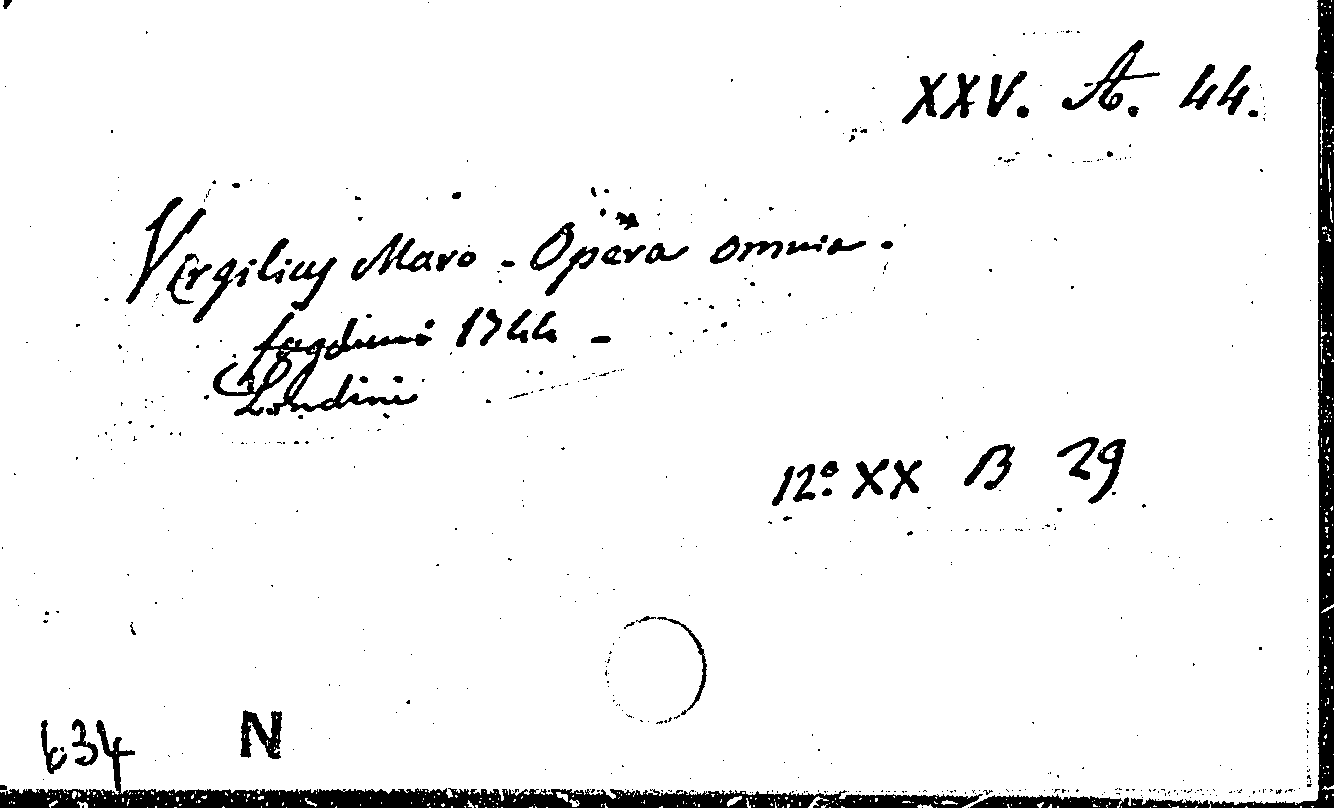 XXV. A. 44.
Virgilius Maro - Opera omnia.
Lugduni 1744 -
Londini
12º XX B 29
634 N